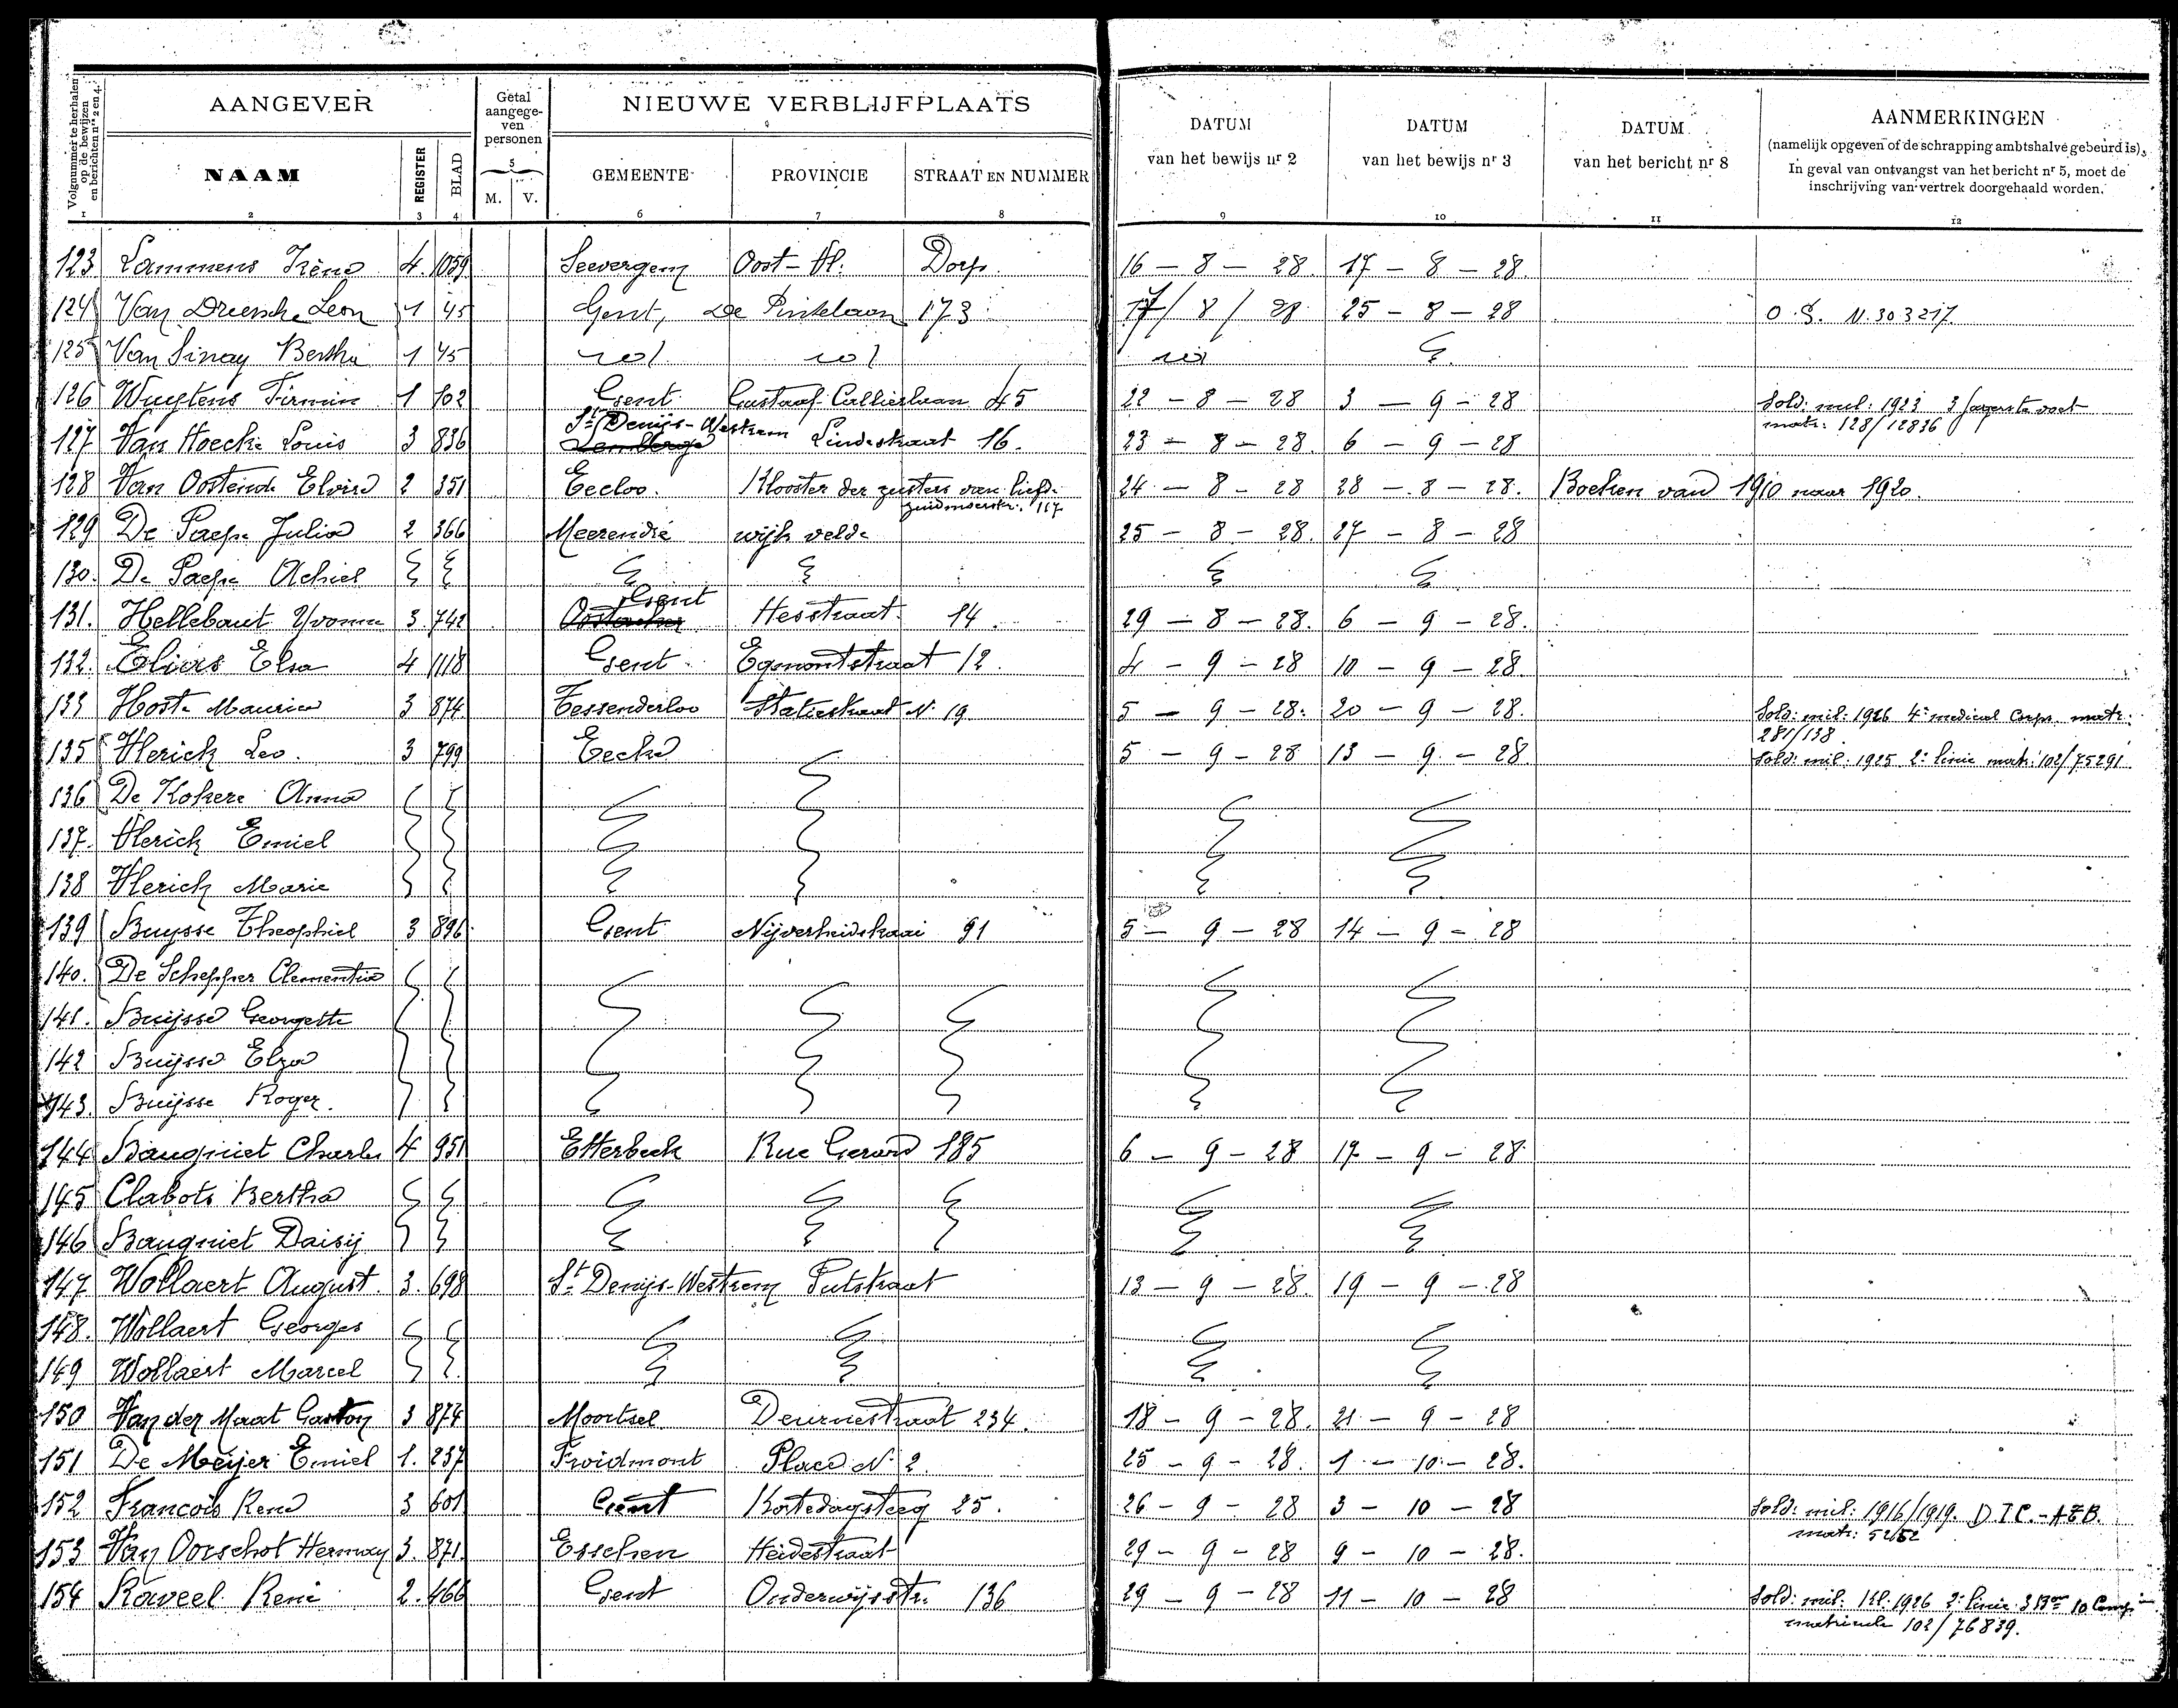 Volgnummer te herhalen op de bewijzen en berichten nrs 2 en 4.
AANGEVER
Getal aangege- ven personen
NIEUWE VERBLIJFPLAATS
DATUM van het bewijs nr 2
DATUM van het bewijs nr 3
DATUM van het bericht nr 8
AANMERKINGEN
(namelijk opgeven of de schrapping ambtshalve gebeurd is).
In geval van ontvangst van het bericht nr 5, moet de
inschrijving van vertrek doorgehaald worden.
NAAM REGISTER BLAD 5 M. V. GEMEENTE PROVINCIE STRAAT EN NUMMER
1 2 3 4 6 7 8 9 10 11 12
123 Lammens Irène 4 1059 Seevergem Oost-Vl. Dorp. 16 - 8 - 28. 17 - 8 - 28.
124 Van Driessche Leon 1 45 Gent, De Pintelaan 173 17 / 8 / 28 25 - 8 - 28 O.S. N. 303217
125 Van Sinay Bertha 1 45
126 Wuytens Firmin 1 102 Gent Gustaaf Callierlaan 45 22 - 8 - 28 3 - 9 - 28 Sold: mil: 1923 3 Jagers te voet
matr: 128/12836
St Denijs-Westrem
127 Van Hoecke Louis 3 836 Lemberge Lindestraat 16. 23 - 8 - 28. 6 - 9 - 28
128 Van Oostende Elvire 2 351 Eecloo. Klooster der zusters van liefde 24 - 8 - 28 28 - 8 - 28. Boeken van 1910 naar 1920.
zuidmoerstr. 117
129 De Paepe Julia 2 366 Meerendré wijk velde 25 - 8 - 28. 27 - 8 - 28
130. De Paepe Achiel
Gent
131. Hellebaut Yvonne 3 742 Oostacker Hesstraat 14. 29 - 8 - 28. 6 - 9 - 28.
132. Eliars Elsa 4 1118 Gent Egmontstraat 12. 4 - 9 - 28 10 - 9 - 28.
133 Hoste Maurice 3 874 Tessenderloo Statiestraat N. 19 5 - 9 - 28. 20 - 9 - 28. Sold: mil: 1926 4e medical Corps matr:
281/138
135 Herick Leo. 3 799 Eecke 5 - 9 - 28 13 - 9 - 28 Sold: mil: 1925 2e linie matr: 102/75291
136 De Kokere Anna
137. Herick Emiel
138 Herick Marie
139 Buysse Theophiel 3 896 Gent Nijverheidskaai 91 5 - 9 - 28 14 - 9 - 28
140. De Schepper Clementia
141. Buijsse Georgette
142 Buijsse Elza
143. Buijsse Roger.
144 Bauquiet Charles 4 951 Etterbeek Rue Gerard 185 6 - 9 - 28 17 - 9 - 28
145 Clabots Bertha
146 Bauquiet Daisij
147 Wollaert August. 3. 698 St Denijs-Westrem Putstraat 13 - 9 - 28. 19 - 9 - 28
148. Wollaert Georges
149 Wollaert Marcel
150 Van der Maat Gaston 3 874 Moortsel Deurnestraat 234. 18 - 9 - 28. 21 - 9 - 28
151 De Meijer Emiel 1. 237 Froidmont Place N. 2 25 - 9 - 28. 1 - 10 - 28.
152 Francois René 3 601 Gent Kortedagsteeg 25. 26 - 9 - 28 3 - 10 - 28 Sold: mil: 1916/1919. D.T.C.-A.E.B.
matr: 52/52
153 Van Oorschot Herman 3. 871. Esschen Heidestraat 29 - 9 - 28 9 - 10 - 28.
154 Raveel René 2. 466 Gent Onderwijsstr. 136 29 - 9 - 28 11 - 10 - 28 Sold: mil: Kl: 1926 2e linie 3 Bon 10 Comp
matricule 102/76839.